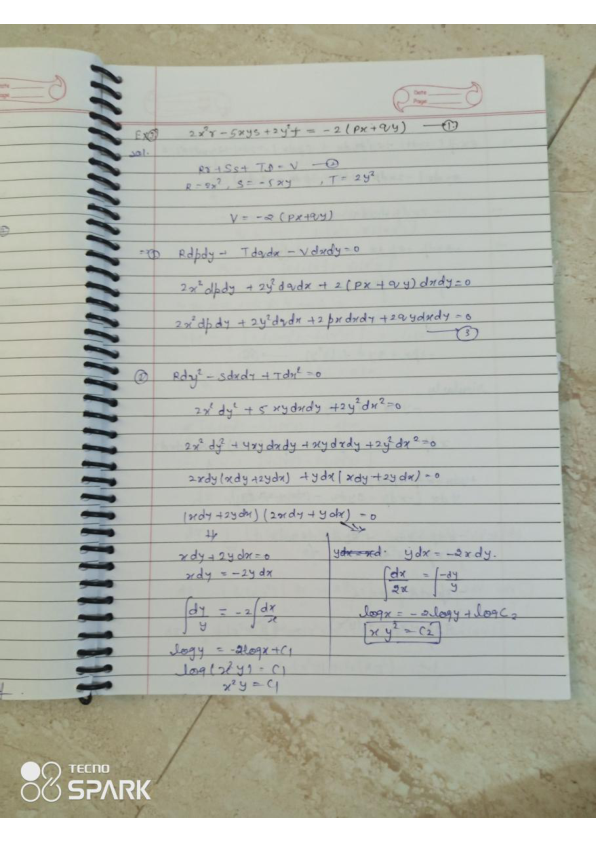 2x²r - 5xys + 2y²t = -2(px+qy) —①
Sol.
Rr + Ss + Tt = V —②
R = 2x², S = -5xy, T = 2y²
V = -2(px+qy)
⇒① Rdpdy + Tdqdx - Vdxdy = 0
2x²dpdy + 2y²dqdx + 2(px + qy)dxdy = 0
2x²dpdy + 2y²dqdx + 2pxdxdy + 2qydxdy = 0
—③
② Rdy² - Sdxdy + Tdx² = 0
2x²dy² + 5xydxdy + 2y²dx² = 0
2x²dy² + 4xydxdy + xydxdy + 2y²dx² = 0
2xdy(xdy+2ydx) + ydx(xdy+2ydx) = 0
(xdy+2ydx)(2xdy+ydx) = 0
xdy + 2ydx = 0
xdy = -2ydx
∫dy/y = -2∫dx/x
logy = -2logx + C1
log(x²y) = C1
x²y = C1
ydx = -2xdy.
∫dx/2x = ∫-dy/y
logx = -2logy + logC2
xy² = C2
TECNO
SPARK